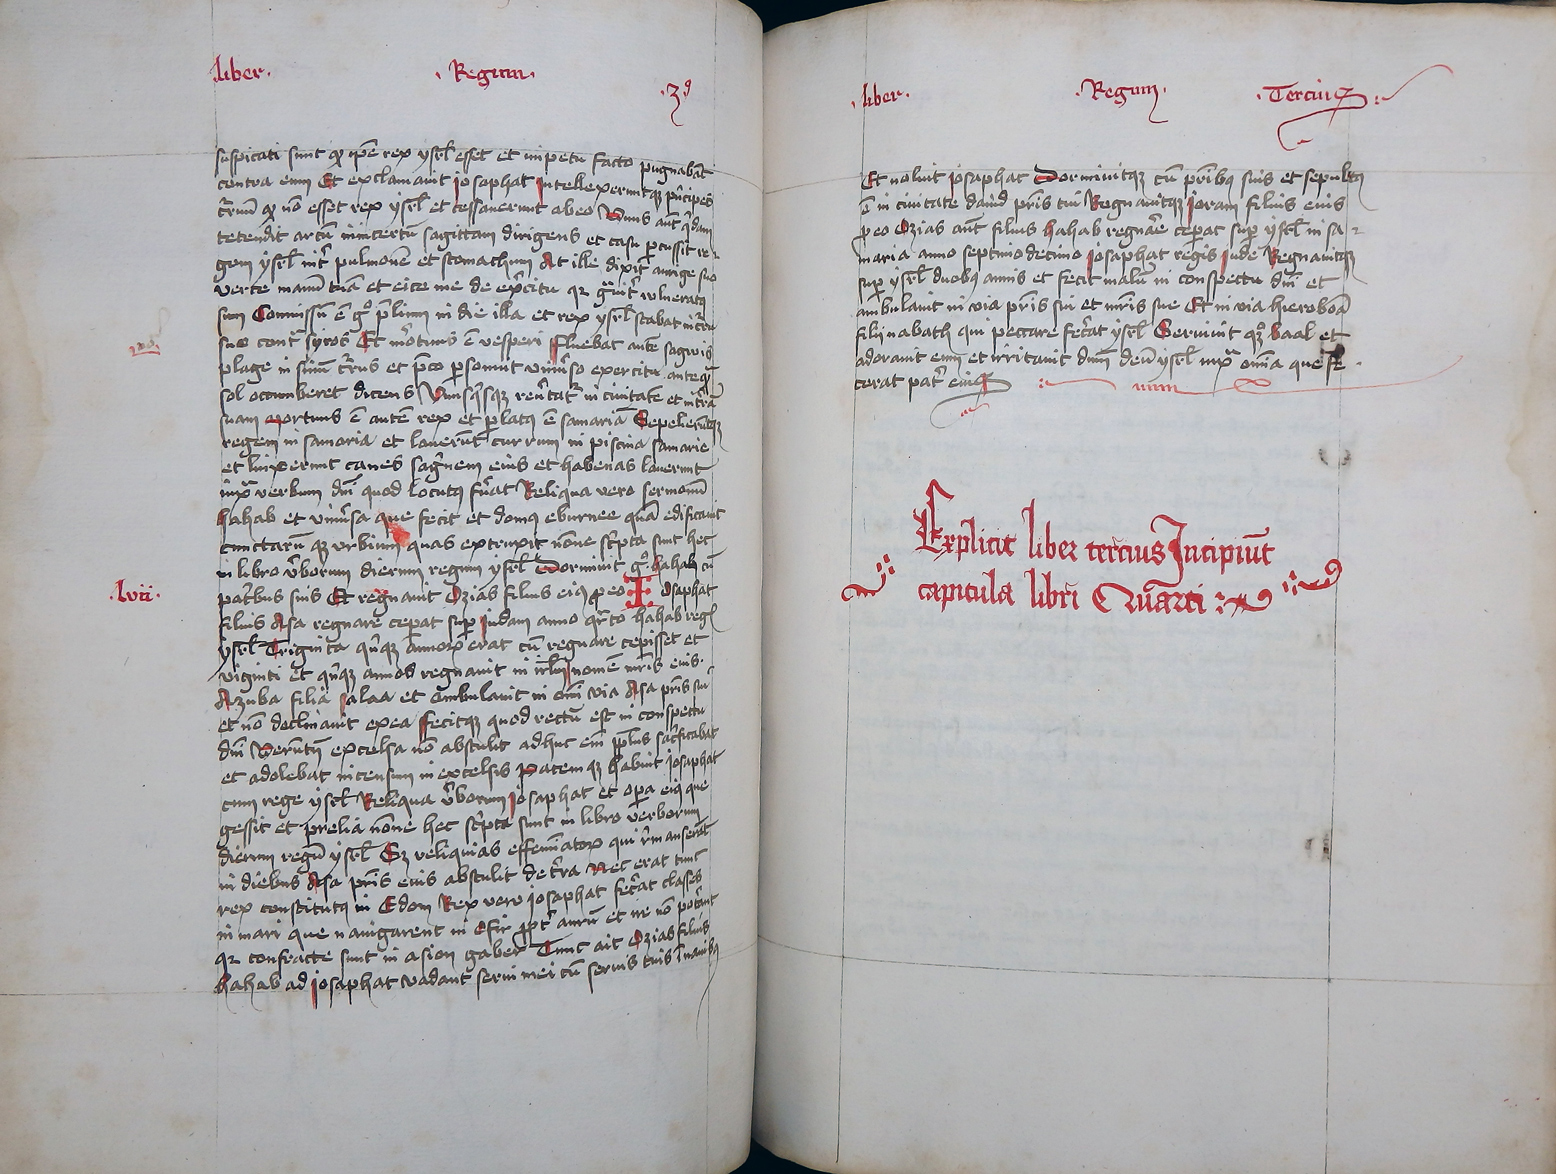 liber. . Regum. .3⁹
suspicati sunt qd ip̄e rex ysrl̄ esset et impetu facto pugnabāt
contra eum Et exclamauit iosaphat Intellexeruntqꝫ p̄ncipes
c̄ruum qd nō esset rex ysrl̄ et cessauerunt abeo Vnus aut̄ q̄dam
tetendit artū inincertū sagittam dirigens et casu ꝑcussit re-
gem ysrl̄ int̄ pulmonē et stomachum At ille dixit aurige suo
verte manū tuā et eice me de exc̄itu qꝛ gͣuit̄ vulneratꝰ
sum Commissū ē gͦ p̄lium in die illa et rex ysrl̄ stabat in c̄ru
suo contͣ syros Et mortuus ē vesperi Fluebat aute sagwis
plage in sinū c̄rus et p̄co ꝑsonuit vniu̓so exercitu anteqͣ
sol occumberet dicens Vnusqͥsqꝫ reu̓tat̄ in ciuitate et in t̄rā
suam Mortuus ē autē rex et ꝑlatꝰ ē samariā Sepelierūtqꝫ
regem in samaria et lauerūt currum in piscina samarie
et linxerunt canes sagͥnem eius et habenas lauerunt
iuxͣ verbum dn̄i quod locutꝰ fu̓at Reliqua vero sermonū
hahab et vniu̓sa que fecit et domꝰ eburnee quā edificauit
cunctarū qꝫ vrbium quas extruxit nōne sc̄pta sunt hec
in libro v̓borum dierum regum ysrl̄ Dormiuit gͦ hahab cū
patribus suis Et regnauit Ozias filius eiꝰ ꝓeo Iosaphat
.lvii.
filius Asa regnare ceꝑat suꝑ iudam anno qͣrto hahab reḡ
ysrl̄ Triginta qͥnqꝫ annoꝝ erat cū regnare cepisset et
viginti et qͥnqꝫ annos regnauit in irl̄m nomē mr̄is eius.
Azuba filia salaa et Ambulauit in om̄i via Asa pr̄is sui
et nō declinauit exea Fecitqꝫ quod rectū est in conspectu
dn̄i Verūtn̄ excelsa nō abstulit adhuc em̄ ppl̄us sac̓ficabat
et adolebat incensum in excelsis Pacemqꝫ habuit Iosaphat
cum rege ysrl̄ Reliqua v̓borum Iosaphat et oꝑa eiꝰ que
gessit et prelia nōne hec sc̓pta sunt in libro verborum
dierum regū ysrl̄ Sꝫ reliquias effeminatoꝝ qui r̓manserāt
in diebus Asa pr̄is eius abstulit de t̓ra Nec erat tunc
rex constitutꝰ in Edom Rex vero Iosaphat fec̓at classes
in mari que nauigarent in Ofir ꝓpt̄ aurū et ire nō pot̓ant
qꝛ confracte sunt in asion gaber Tunc ait Ozias filius
hahab ad Iosaphat vadant serui mei cū seruis tuis Inauibꝰ
.liber. .Regum. .Tercius
Et noluit Iosaphat Dormiuitqꝫ cū pr̄ibꝰ suis et sepultꝰ
ē in ciuitate dauid pr̄is sui Regnauitqꝫ Ioram filius eius
ꝓeo Ozias aut̄ filius hahab regnāe ceꝑat suꝑ ysrl̄ in sa-
maria anno septimodecimo Iosaphat regis Iude Regnauitqꝫ
suꝑ ysrl̄ duobꝰ annis et fecit malū in conspectu dn̄i et
ambulauit in via pr̄is sui et mr̄is sue Et in via hieroboā
filij nabath qui peccare fec̓at ysrl̄ Seruiuit qꝫ baal et
adorauit eum et irritauit dn̄m deū ysrl̄ iuxͣ om̄ia que fe-
cerat pat̄ eius
Explicit liber tercius Incipiūt
capitula libri Quarti